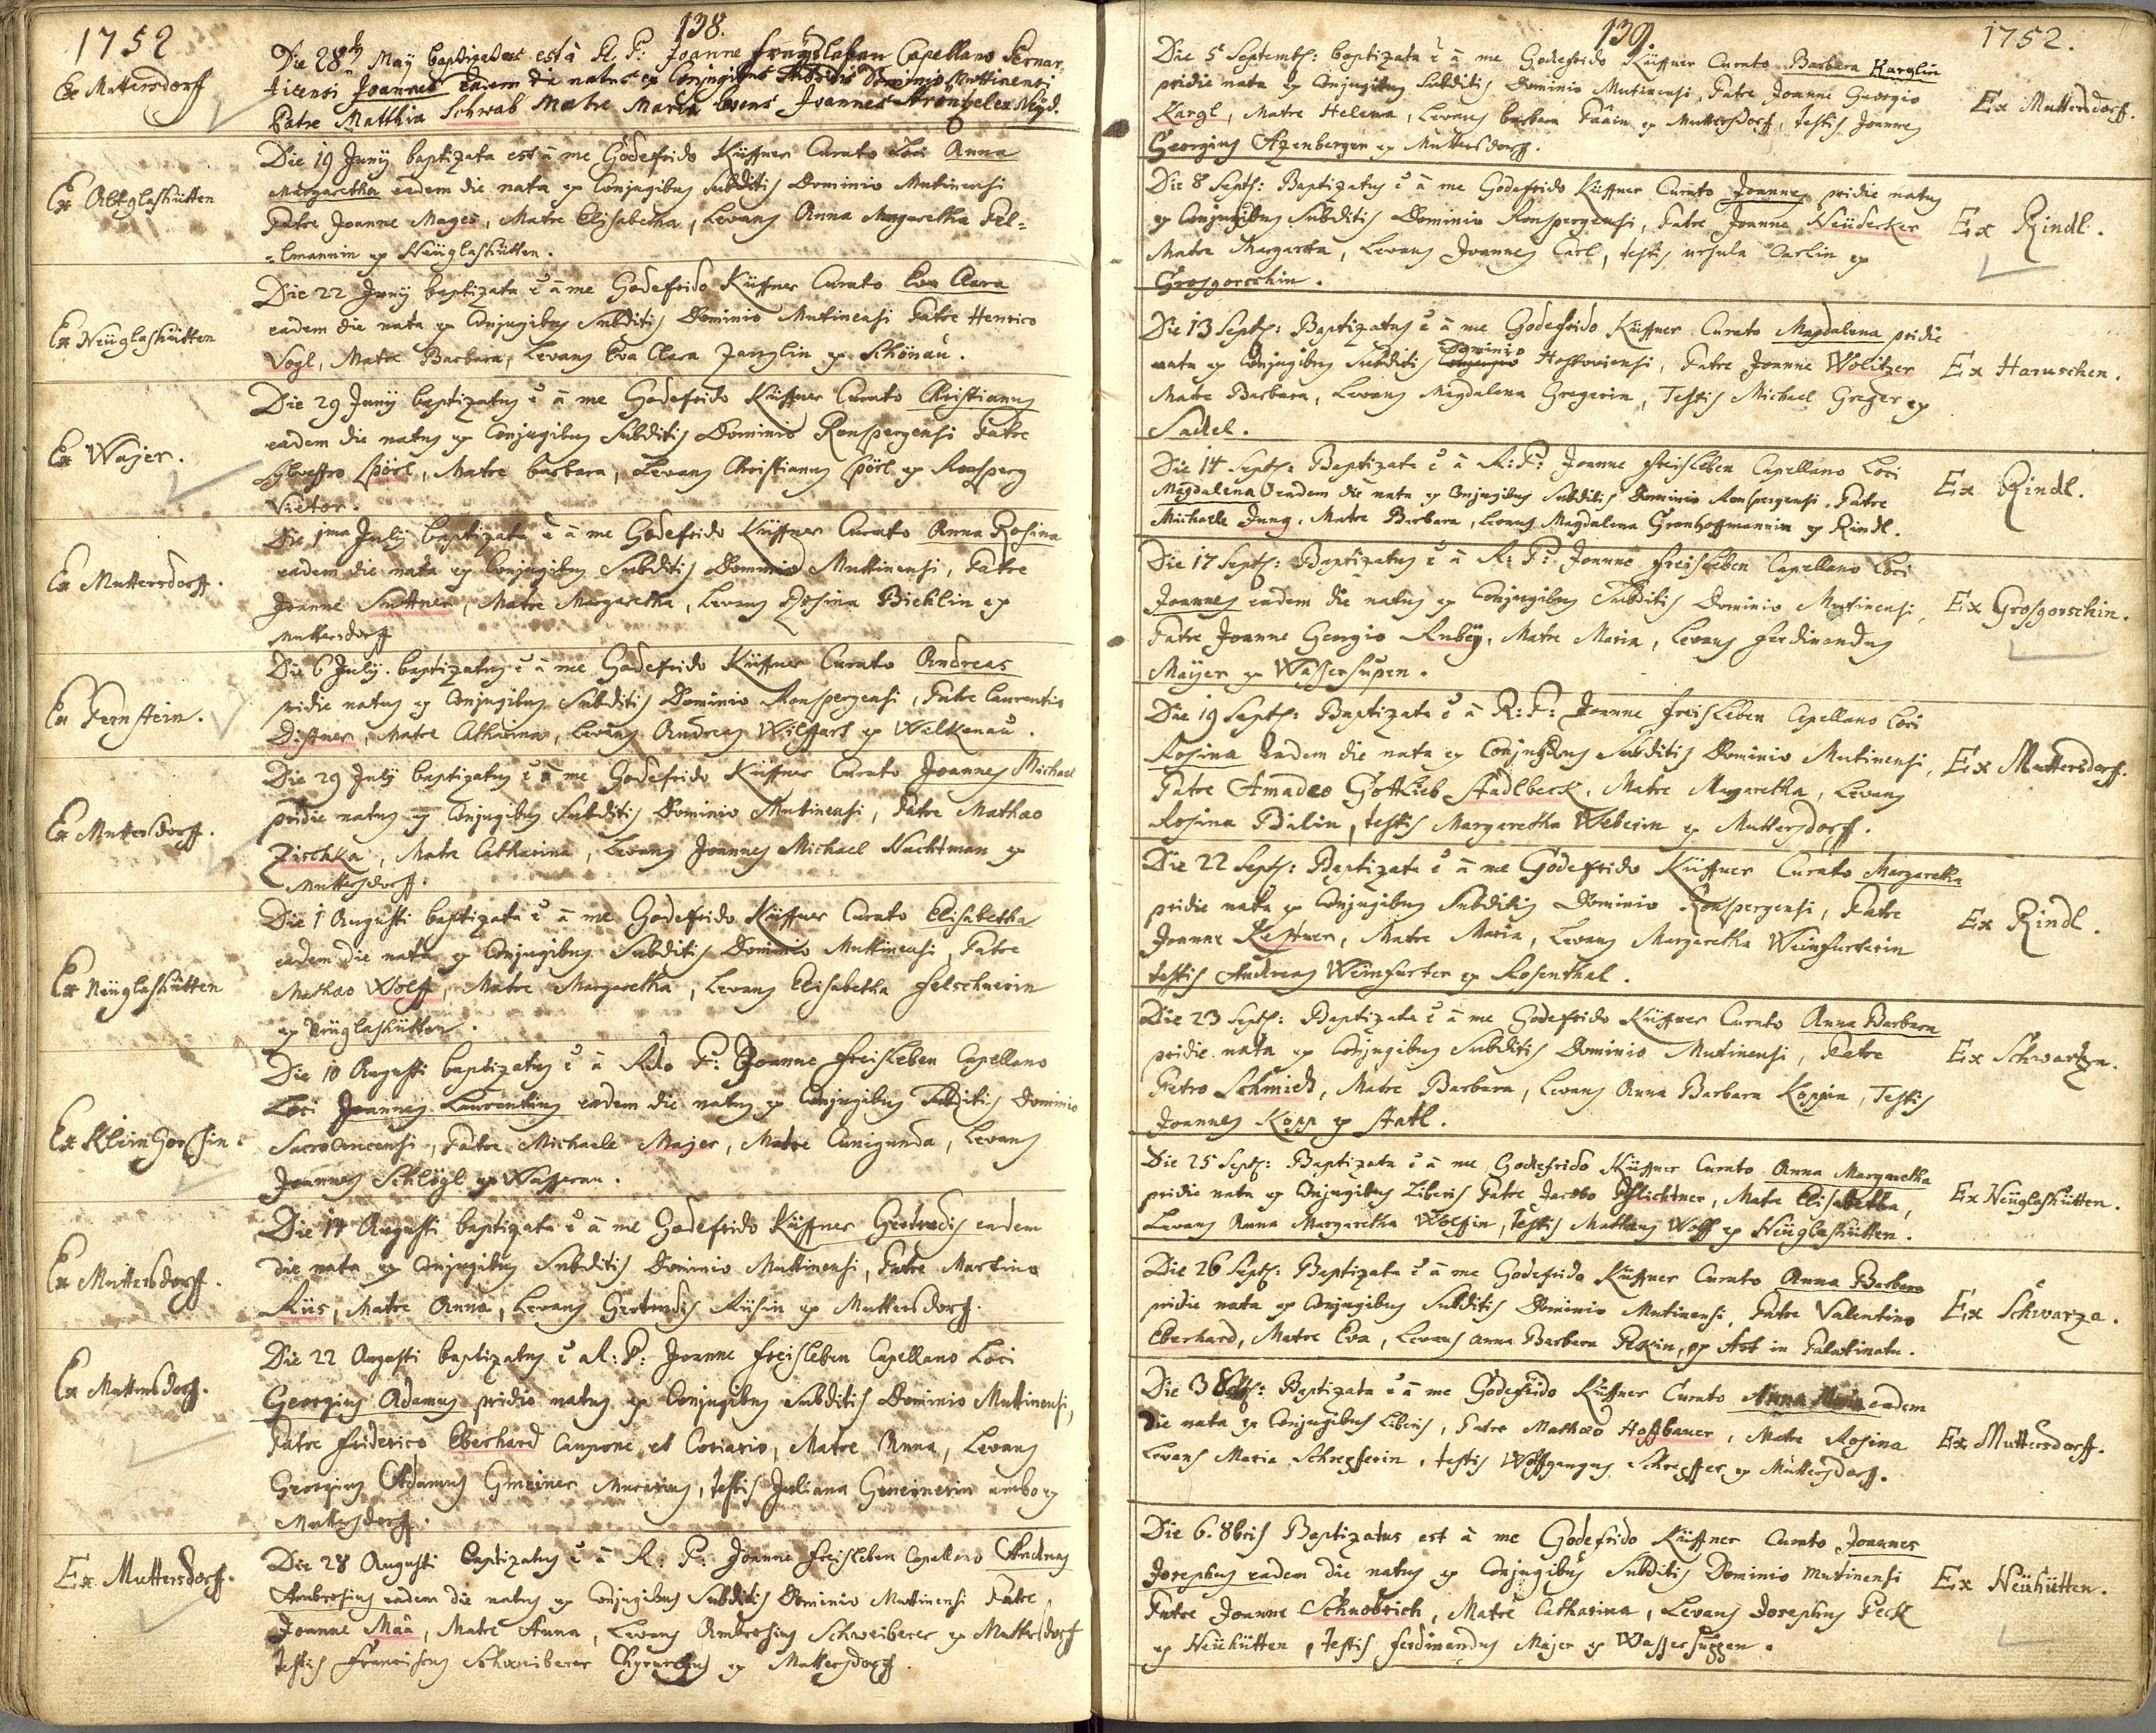 1752
138.
Ex Muttersdorff
Die 28 May baptizatus est à R. P. Joanne Capellano
Joannes eadem die natus ex Conjugibus Dominio Muttinensi
Patre Matthia Schwab Matre Maria Levans Joannes
Ex Altglashütten
Die 19 Junÿ baptizata est à me Godefrido Küffner Curato Loci Anna
Margaretha eadem die nata ex Conjugibus Subditis Dominio Mutinensi
Patre Joanne Mages, Matre Elisabetha, Levans Anna Margaretha Pel=
=lmannin ex Neüglashütten.
Ex Neüglashütten
Die 22 Junÿ baptizata ē à me Godefrido Küffner Curato Eva Clara
eadem die nata ex Conjugibus Subditis Dominio Mutinensi Patre Henrico
Vogl, Matre Barbara, Levans Eva Clara Janglin ex Schönau.
Ex Wajer.
Die 29 Junÿ baptizatus ē à me Godefrido Küffner Curato Christianus
eadem die natus ex Conjugibus Subditis Dominio Ronspergensi Patre
Sylvestro Pörl, Matre barbara, Levans Christianus Pörl ex Ronsperg
Viëtor.
Ex Muttersdorff.
Die 1ma Julÿ baptizata ē à me Godefrido Küffner Curato Anna Rosina
eadem die nata ex Conjugibus Subditis Dominio Muttinensi, Patre
Joanne Suttner, Matre Margaretha, Levans Rosina Bichlin ex
Muttersdorff
Ex Fernstein.
Die 6 Julÿ. baptizatus ē à me Godefrido Küffner Curato Andreas
pridie natus ex Conjugibus Subditis Dominio Ronspergensi, Patre Laurentio
Distner, Matre Catharina, Levans Andreas Wilffart ex Welkenau.
Ex Muttersdorff.
Die 29 Julÿ baptizatus ē à me Godefrido Küffner Curato Joannes Michael
pridie natus ex Conjugibus Subditis Dominio Mutinensi, Patre Mathæo
Zischka, Matre Catharina, Levans Joannes Michael Nachtman ex
Muttersdorff.
Ex Neüglashütten
Die 1 Augusti baptizata ē à me Godefrido Küffner Curato Elisabetha
eadem die nata ex Conjugibus Subditis Dominio Muttinensi, Patre
Mathæo Wolff, Matre Margaretha, Levans Elisabetha Felschnerin
ex Neüglashütten.
Ex Klein Gorschin.
Die 10 Augusti baptizatus ē à Rdo P: Joanne Freisleben Capellano
Loci Joannes Laurentius eadem die natus ex Conjugibus Subditis Dominio
Patre Michaele Majer, Matre Cunigunda, Levans
Joannes Schlögl ex Wasserau.
Ex Muttersdorff.
Die 14 Augusti baptizata ē à me Godefrido Küffner Gertrudis eadem
die nata ex Conjugibus Subditis Dominio Muttinensi, Patre Martino
Riis, Matre Anna, Levans Gertrudis Riisin ex Muttersdorff.
Ex Muttersdorff.
Die 22 Augusti baptizatus ē a R: P: Joanne Freisleben Capellano Loci
Georgius Adamus pridie natus ex Conjugibus Subditis Dominio Mutinensi,
Patre Friderico Eberhard Caupone et Coriario, Matre Anna, Levans
Georgius Adamus Gmeiner Murarius, testis Juliana Gmeinerin ambo ex
Muttersdorff.
Ex Muttersdorff.
Die 28 Augusti baptizatus ē à R: P: Joanne Freisleben Capellano Andreas
Ambrosius eadem die natus ex Conjugibus Subditis Dominio Muttinensi Patre
Joanne Maã, Matre Anna, Levans Ambrosius Schreiberer ex Muttersdorff
testis Franciscus Schreiberer Chyrurgus ex Muttersdorff.
139
1752.
Die 5 Septembr: baptizata ē à me Godefrido Küffner Curato Barbara Karglin
pridie nata ex Conjugibus Subditis Dominio Mutinensi, Patre Joanne Georgio
Kargl, Matre Helena, Levans barbara Paãin ex Muttersdorff, testis Joannes
Georgius Azenberger ex Muttersdorff.
Ex Muttersdorff.
Die 8 Septb: Baptizatus ē à me Godefrido Küffner Curato Joannes pridie natus
ex Conjugibus Subditis Dominio Ronspergensi, Patre Joanne Neüderker
Matre Margareta, Levans Joannes Carl, testis ursula Carlin ex
Grosgorschin.
Ex Rindl.
Die 13 Septb: Baptizatus ē à me Godefrido Küffner Curato Magdalena pridie
nata ex Conjugibus Subditis Dominio Hostoviensi, Patre Joanne Wolitzer
Matre Barbara, Levans Magdalena Gregerin, Testis Michael Greger ex
Sadel.
Ex Haruschen.
Die 14 Septb: Baptizata ē à R: P: Joanne Freisleben Capellano Loci
Magdalena eadem die nata ex Conjugibus Subditis Dominio Ronspergensi, Patre
Michaele Jung, Matre Barbara, Levans Magdalena Gronhoffmannin ex Rindl.
Ex Rindl.
Die 17 Septb: Baptizatus ē à R: P: Joanne Freisleben Capellano Loci
Joannes eadem die natus ex Conjugibus Subditis Dominio Mutinensi,
Patre Joanne Georgio Rubeÿ, Matre Maria, Levans Ferdinandus
Maÿer ex Wassersupen.
Ex Grosgorschin.
Die 19 Septb: Baptizata ē à R: P: Joanne Freisleben Capellano Loci
Rosina Eadem die nata ex Conjugibus Subditis Dominio Mutinensi,
Patre Amadeo Gottlieb Stadlbeck, Matre Margaretha, Levans
Rosina Bälin, testis Margaretha Weberin ex Muttersdorff.
Ex Muttersdorff.
Die 22 Septb: Baptizata ē à me Godefrido Küffner Curato Margaretha
pridie nata ex Conjugibus Subditis Dominio Ronspergensi, Patre
Joanne Kestner, Matre Maria, Levans Margaretha Weinfurterin
testis Andreas Weinfurter ex Rosenthal.
Ex Rindl.
Die 23 Septb: Baptizata ē à me Godefrido Küffner Curato Anna Barbara
pridie nata ex Conjugibus Subditis Dominio Mutinensi, Patre
Petro Schmidt, Matre Barbara, Levans Anna Barbara Koppin, Testis
Joannes Kopp ex Statl.
Ex Schwartza.
Die 25 Septb: Baptizata ē à me Godefrido Küffner Curato Anna Margaretha
pridie nata ex Conjugibus Liberis Patre Jacobo Schlichtner, Matre Elisabetha,
Levans Anna Margaretha Wolffin, testis Mathæus Wolff ex Neüglashütten.
Ex Neüglashütten.
Die 26 Septb: Baptizata ē à me Godefrido Küffner Curato Anna Barbara
pridie nata ex Conjugibus Subditis Dominio Mutinensi, Patre Valentino
Eberhard, Matre Eva, Levans Anna Barbara Pekin, ex Ast in Palatinatu.
Ex Schwarza.
Die 3 8bris: Baptizata ē à me Godefrido Küffner Curato Anna Maria eadem
die nata ex Conjugibus Liberis, Patre Mathæo Hoffbauer, Matre Rosina
Levans Maria Schrepferin, testis Wolffgangus Schrepffer ex Muttersdorff.
Ex Muttersdorff.
Die 6. 8bris Baptizatus est à me Godefrido Küffner Curato Joannes
Josephus eadem die natus ex Conjugibus Subditis Dominio Mutinensi
Patre Joanne Schnobrich, Matre Catharina, Levans Josephus Peck
ex Neühütten, testis Ferdinandus Majer ex Wassersuppen.
Ex Neühütten.